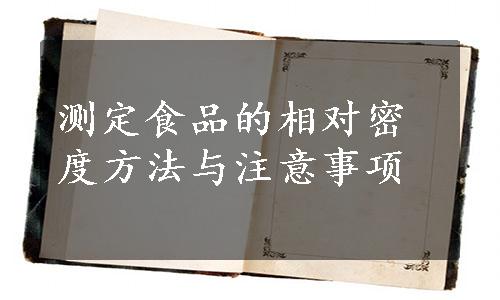 测定食品的相对密
度方法与注意事项